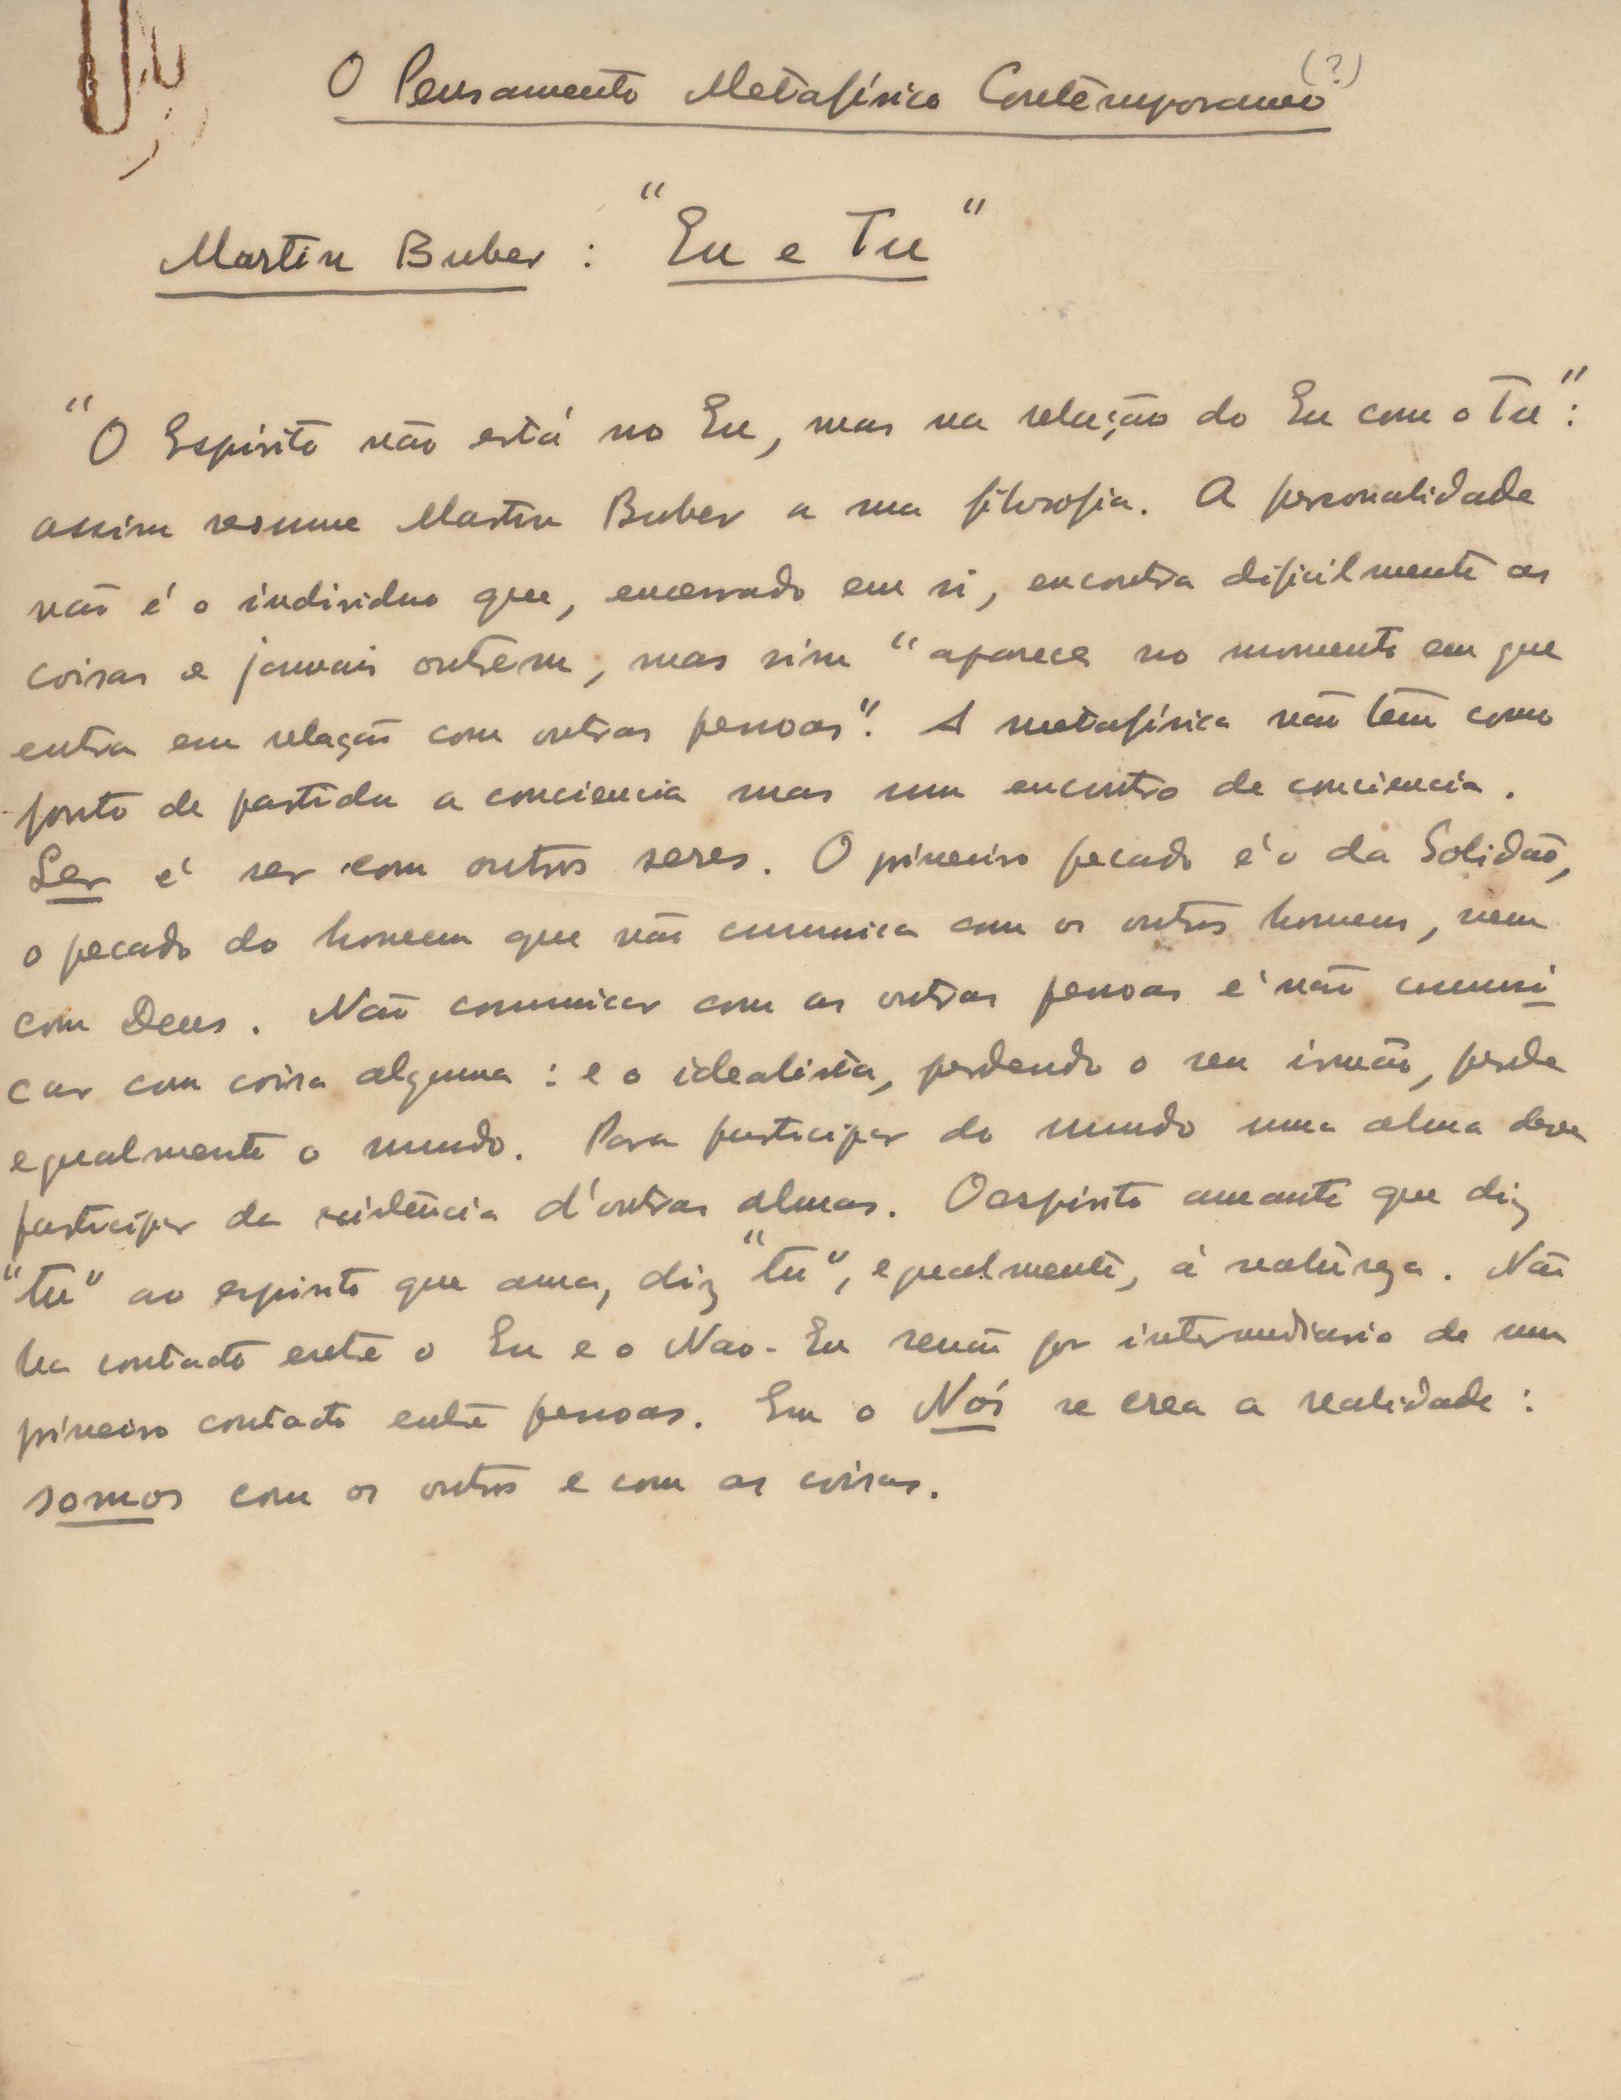 O Pensamento Metafísico Contemporaneo (?)
Martin Buber : "Eu e Tu"
"O Espírito não está no Eu, mas na relação do Eu com o Tu":
assim resume Martin Buber a sua filosofia. A personalidade
não é o individuo que, encerrado em si, encontra dificilmente as
coisas e jamais outrem, mas sim "aparece no momento em que
entra em relação com outras pessoas". A metafísica não tem como
ponto de partida a conciencia mas um encontro de conciencia.
Ser é ser com outros seres. O primeiro pecado é o da Solidão,
o pecado do homem que não comunica com os outros homens, nem
com Deus. Não comunicar com as outras pessoas é não comuni
car com coisa alguma : e o idealista, perdendo o seu irmão, perde
egualmente o mundo. Para participar do mundo uma alma deve
participar da existência d'outras almas. O espirito amante que diz
"tu" ao espirito que ama, diz "tu", egualmente, á naturesa. Não
ha contacto entre o Eu e o Nao-Eu senão por intermediario de um
primeiro contacto entre pessoas. Em o Nós se crea a realidade :
somos com os outros e com as coisas.